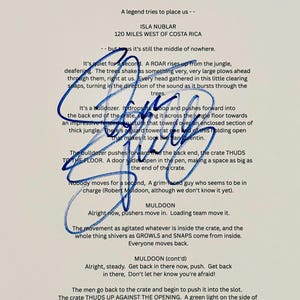 A legend tries to place us - -
ISLA NUBLAR
120 MILES WEST OF COSTA RICA
- - but to us it's still the middle of nowhere.
It's quiet for a second. A ROAR rises up from the jungle,
deafening. The trees shake as something very, very large plows ahead
through them, right at us. Every head gathered in this little clearing
snaps, turning in the direction of the sound as it bursts through the
trees.
It's a bulldozer. It drops its scoop and pushes forward into
the back end of the crate, pushing it across the jungle floor towards
an impressive fenced enclosed section of
thick jungle. tower at the opening
that makes it look San Quentin.
The bulldozer pushes forward the back end, the crate THUDS
TO THE FLOOR. A door slides open in the pen, making a space as big as
the end of the crate.
Nobody moves for a second. A grim-faced guy who seems to be in
charge (Robert Muldoon, although we don't know it yet).
MULDOON
Alright now, pushers move in. Loading team move it.
The movement as agitated whatever is inside the crate, and the
whole thing shivers as GROWLS and SNAPS come from inside.
Everyone moves back.
MULDOON (cont'd)
Alright, steady. Get back in there now, push. Get back
in there, Don't let her know you're afraid!
The men go back to the crate and begin to push it into the slot.
The crate THUDS UP AGAINST THE OPENING. A green light on the side of